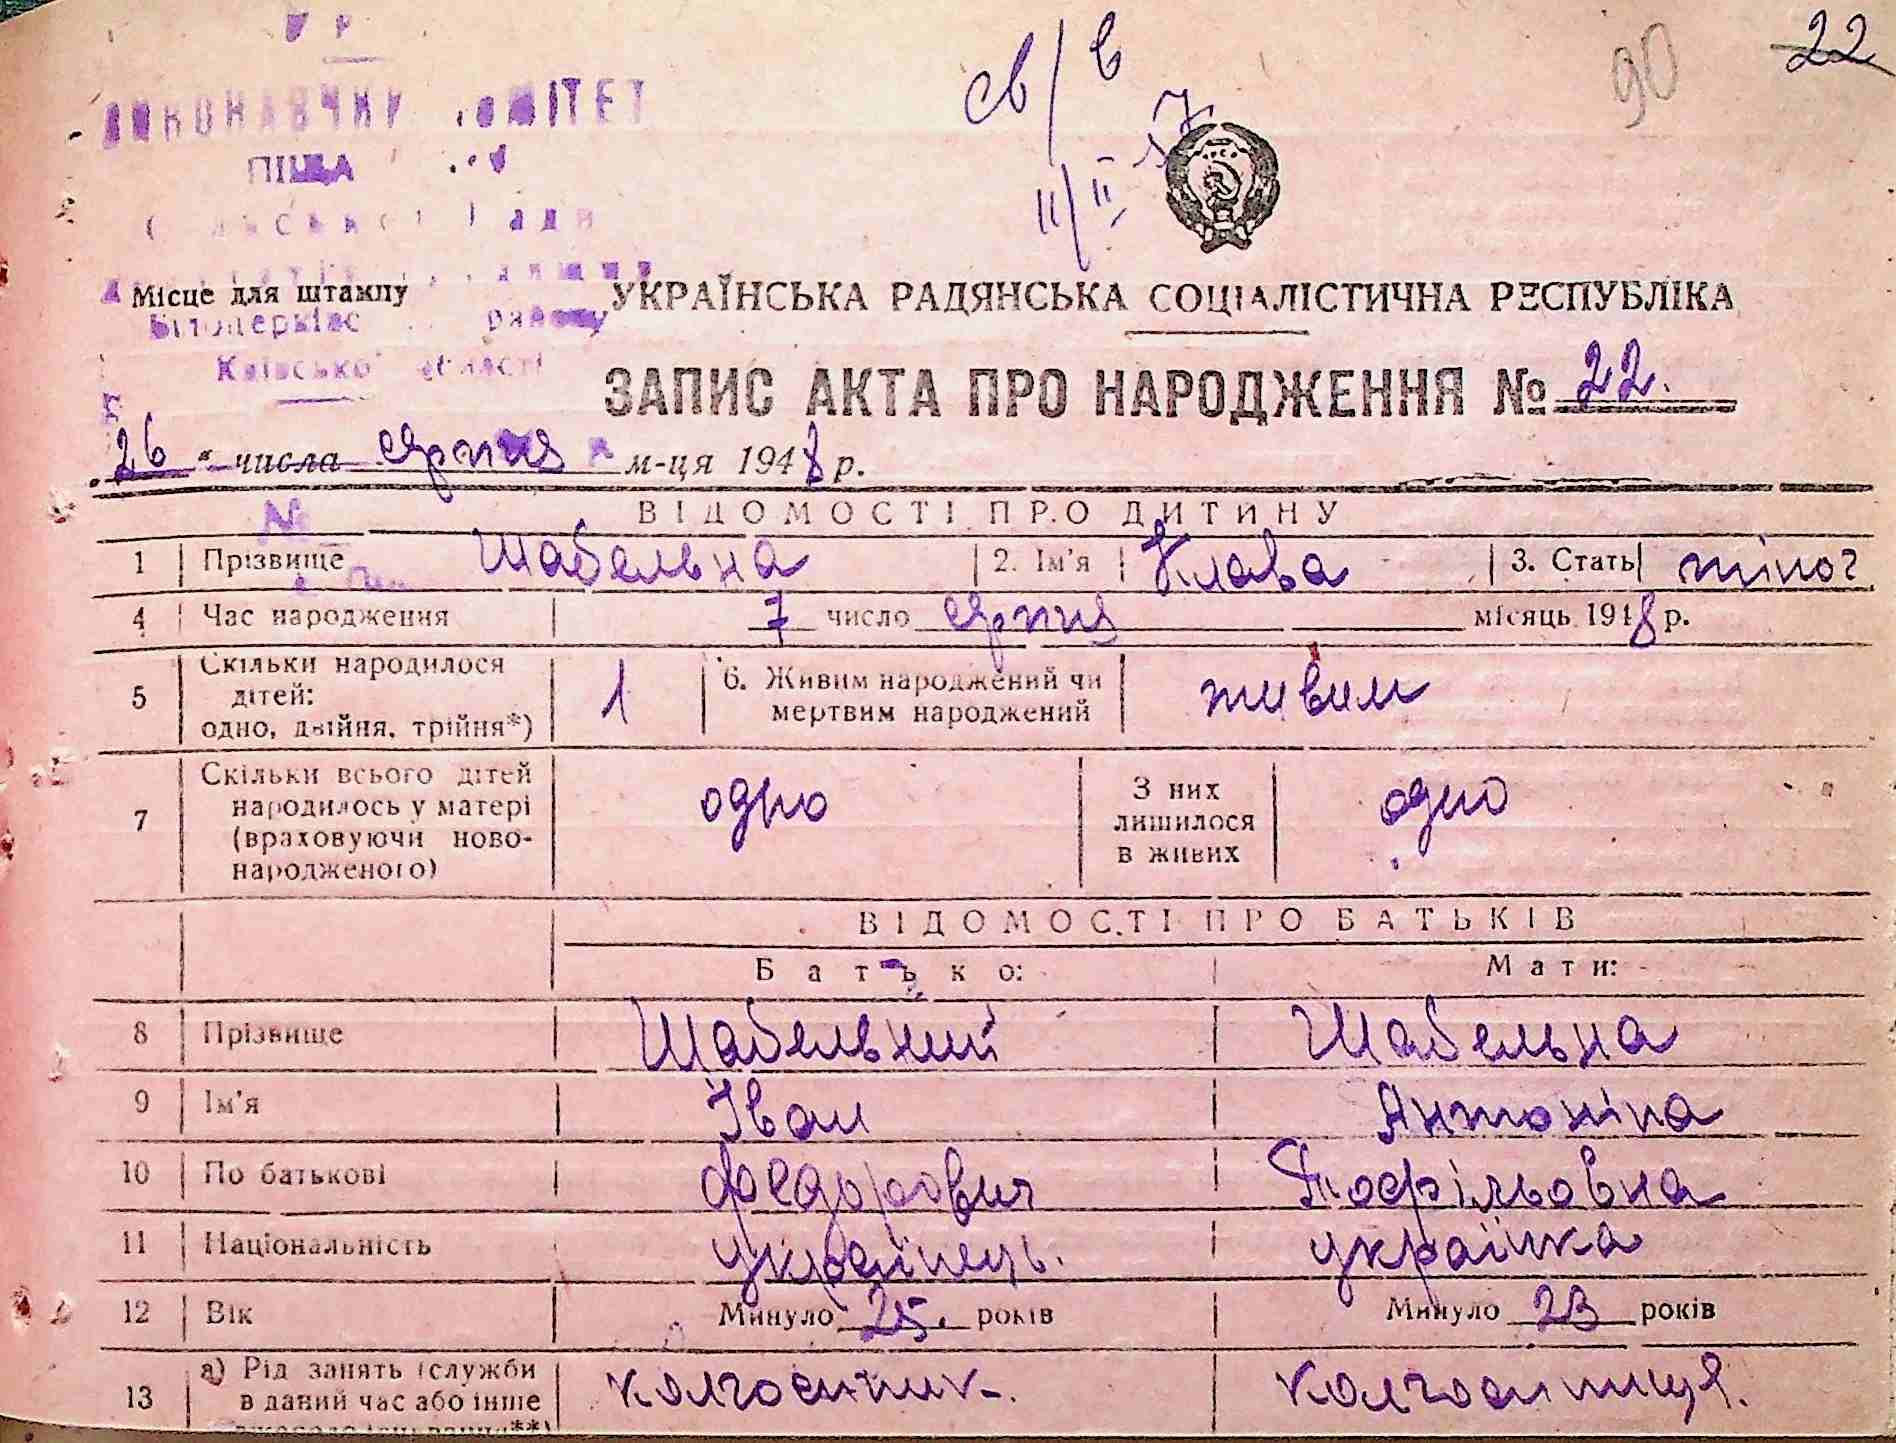 22
90
св/в
11/II 57
ВИКОНАВЧИЙ КОМІТЕТ
Сільської Ради
Місце для штампу
Білоцерківс району
Київської області
УКРАЇНСЬКА РАДЯНСЬКА СОЦІАЛІСТИЧНА РЕСПУБЛІКА
ЗАПИС АКТА ПРО НАРОДЖЕННЯ № 22.
26 " числа серпня м-ця 1948 р.
№
ВІДОМОСТІ ПРО ДИТИНУ
1 Прізвище Шабельна 2. Ім'я Клава 3. Стать жіноч
4 Час народження 7 число серпня місяць 1948 р.
5 Скільки народилося дітей: одно, двійня, трійня*) 1 6. Живим народжений чи мертвим народжений живим
7 Скільки всього дітей народилось у матері (враховуючи ново-народженого) одно З них лишилося в живих одно
ВІДОМОСТІ ПРО БАТЬКІВ
Батько: Мати:
8 Прізвище Шабельний Шабельна
9 Ім'я Іван Антоніна
10 По батькові Федорович Теофільовна
11 Національність українець. українка
12 Вік Минуло 25. років Минуло 23 років
13 а) Рід занять (служби в даний час або інше колгоспник. колгоспниця.